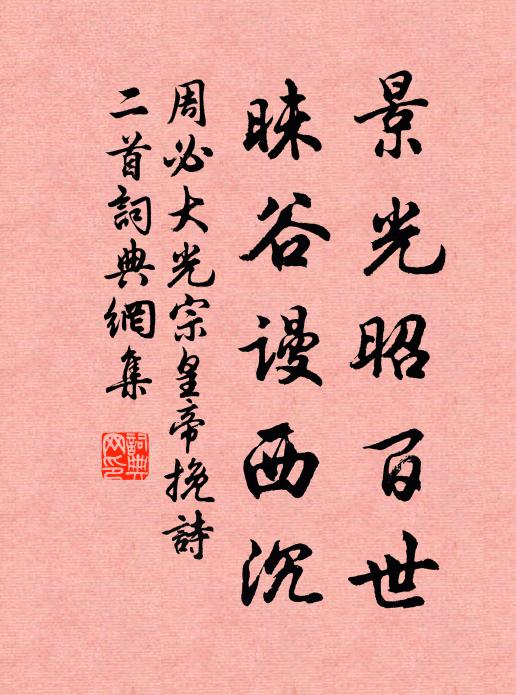 景光昭百世
昧谷謾西沉
周必大光宗皇帝挽詩
二首詞典網集
詞典网印